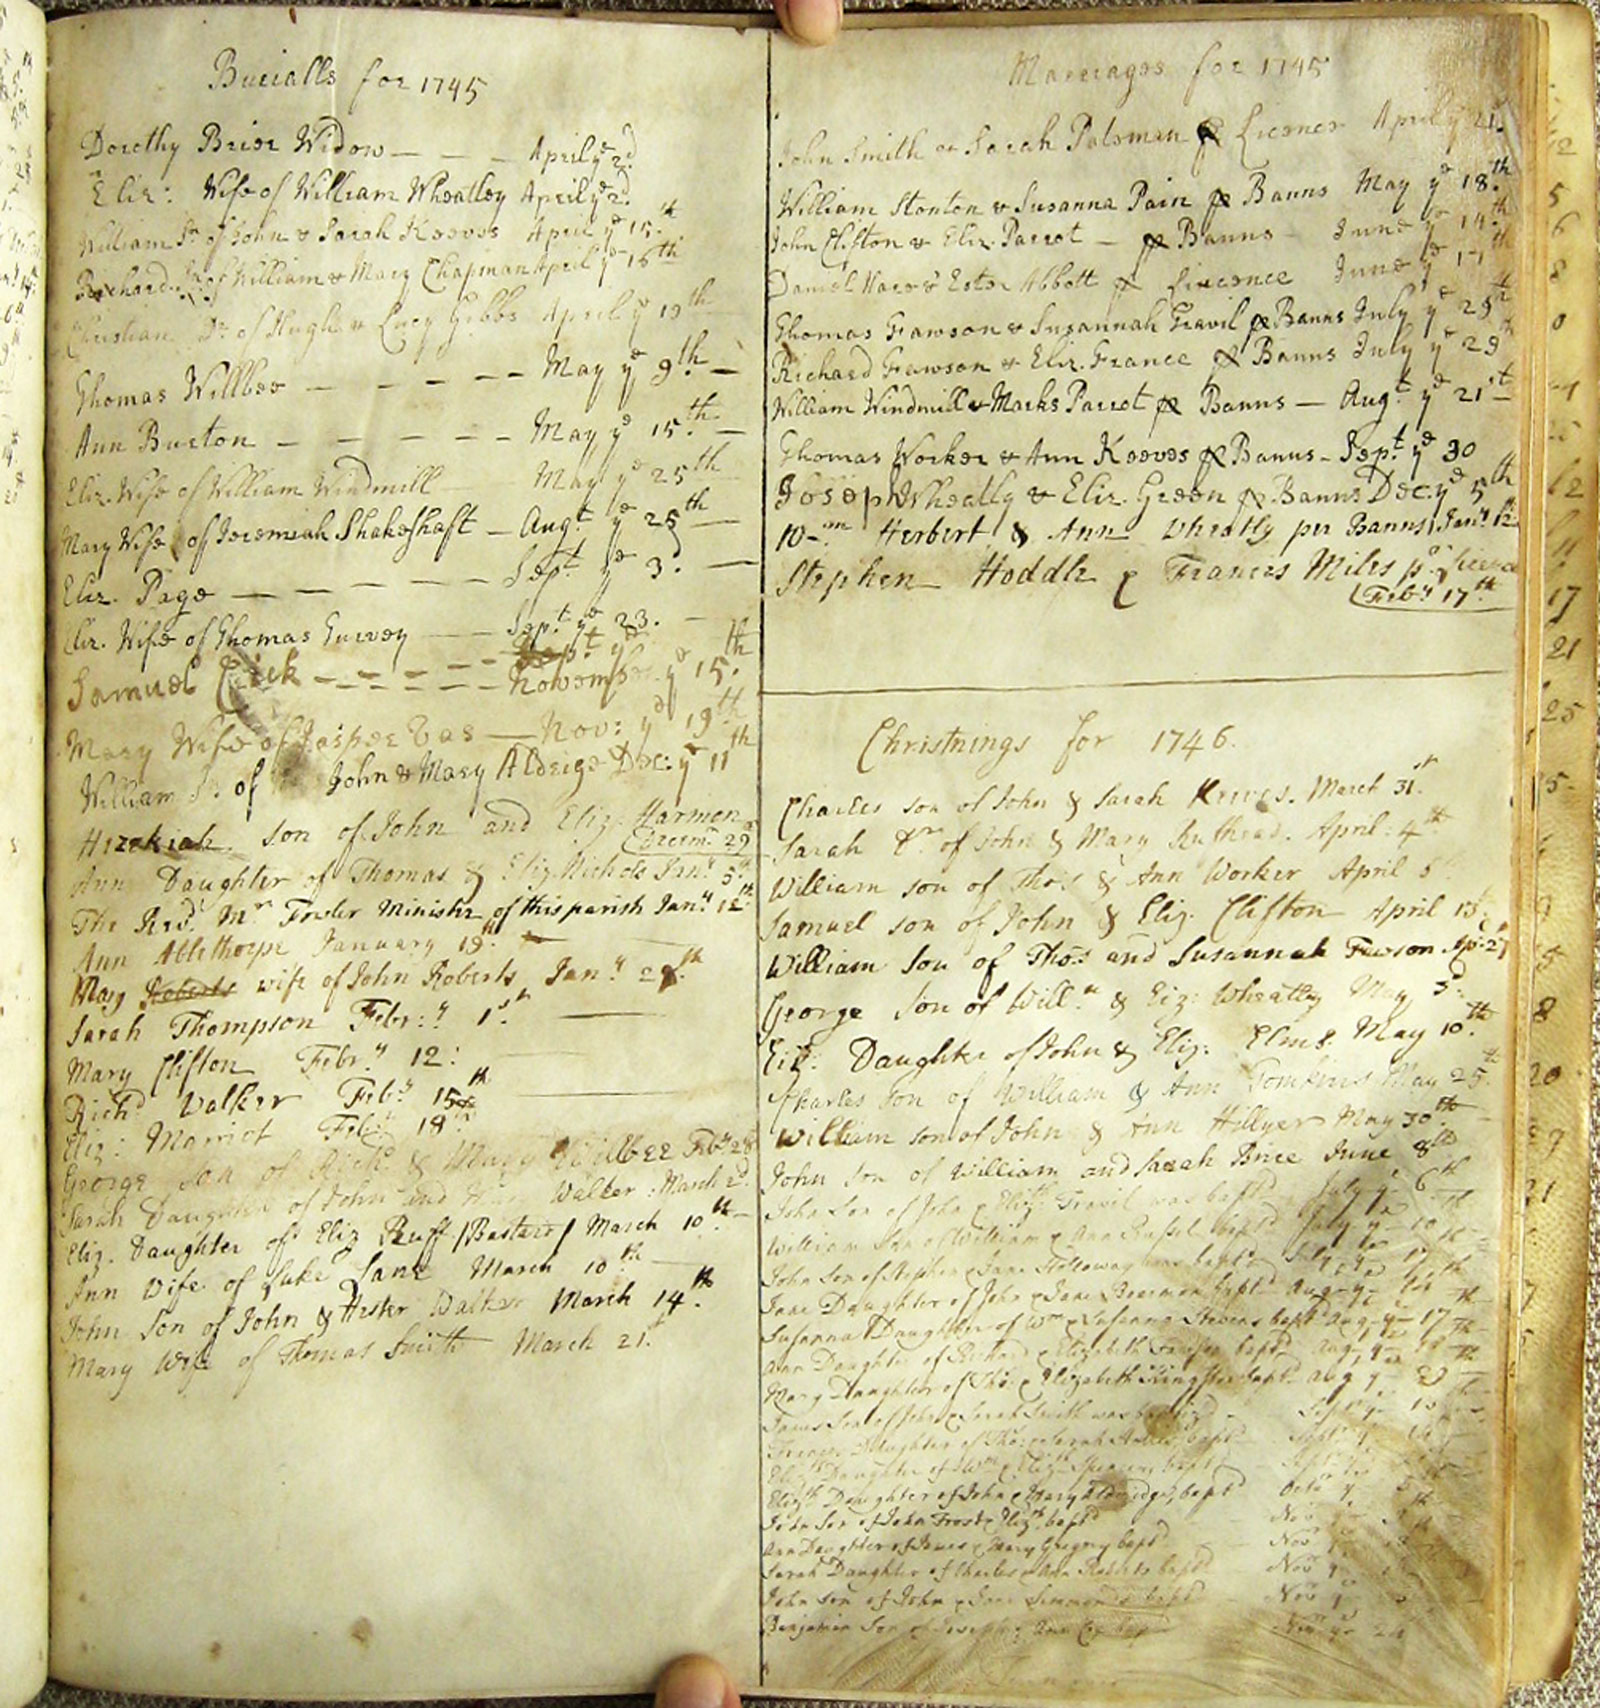 Burialls for 1745
Dorothy Brior Widow — — — April ye 2d
Eliz: Wife of William Wheatley April ye 2d
William Sn of John & Sarah Keeves April ye 15th
Richard Sn of William & Mary Chapman April ye 16th
Christian Dr of Hugh & Lucy Gibbs April ye 19th
Thomas Willbee — — — — — May ye 9th —
Ann Burton — — — — — May ye 15th —
Eliz. Wife of William Windmill May ye 25th
Mary Wife of Jeremiah Shakeshaft — Augt ye 25th —
Eliz. Page — — — — — Sept ye 3d —
Eliz. Wife of Thomas Gurvey — Sept ye 23. —
Sept ye
Samuel Crick — — — — — November ye 15th
Mary Wife of Jasper Vas — Nov: ye 19th
William Sn of John & Mary Aldrige Dec: ye 11th
Hezekiah son of John and Eliz. Harmon
Decem: 29
Ann Daughter of Thomas & Eliz. Nichols Jany 5th
The Revd Mr Fowler Minister of this parish Jany 12th
Ann Ablethorpe January 19th —
Mary Roberts wife of John Roberts Jany 28th
Sarah Thompson Febr:y 1st —
Mary Clifton Febry 12:
Richd Walker Feby 15th
Eliz: Marriot Feby 18th
George Son of Richd & Mary Wilbee Feby 28
Sarah Daughter of John and Walker March 2d
Eliz. Daughter of Eliz Ruff /Bastard/ March 10th —
Ann Wife of Luke Lane March 10th —
John Son of John & Hester Walker March 14th
Mary Wife of Thomas Smith March 21st
Marriages for 1745
John Smith & Sarah Polsman p Licence April ye 21st
William Stonton & Susanna Pain p Banns May ye 18th
John Clifton & Eliz. Parrot — p Banns — June ye 14th
Daniel Hare & Ester Abbott p Lincence June ye 17th
Thomas Fawson & Susannah Gravil p Banns July ye 29th
Richard Fawson & Eliz. France p Banns July ye 29th
William Windmill & Marks Parrot p Banns — Augt ye 21st
Thomas Worker & Ann Keeves p Banns — Sept ye 30
Joseph Wheatly & Eliz. Green p Banns Dec. ye 5th
Herbert & Ann Wheatly per Banns Jany 12
Stephen Hoddle & Frances Miles pr
Feby 17th
Christnings for 1746.
Charles son of John & Sarah Keeves. March 31st
Sarah Dr of John & Mary Ruthead. April: 4th
William son of Thos & Ann Worker April 6
Samuel son of John & Eliz. Clifton April 13th
William Son of Thos and Susannah Fawson Ap: 27
George Son of Willm & Eliz: Wheatley May 3d
Eliz: Daughter of John & Eliz: Elms. May 10th
Charles Son of William & Ann Tomkins May 25th
William son of John & Ann Hillyer May 30th
John Son of William and Sarah Brice June 8th
John Son of John & Elizth Gravil was baptd July ye 6th
William Son of William & Ann Russel baptd July ye 10th
John Son of Stephen & Jane Holloway was baptd July ye
Jane Daughter of John & Jane Boarman bapt Aug ye
Susanna Daughter of Wm & Susanna Stevens baptd Aug ye 17th
Ann Daughter of Richard & Elizabeth Fawson baptd Aug ye
Mary Daughter of Tho: & Elizabeth baptd Aug ye
James Son of John & Sarah Smith was baptized Sept ye
Frances Daughter of Tho: & Sarah baptd Sept ye
Elizth Daughter of Wm & Elizth Spencer, baptd
Elizth Daughter of John & Mary Aldridge, baptd Octo ye
John Son of John Frost & Elizth baptd Nov
Ann Daughter of James & Mary Gregory baptd Nov ye
Sarah Daughter of Charles & Ann Roberts baptd Nov ye
John Son of John & Jane Simmonds baptd Nov ye
Benjamin Son of Joseph & Ann Cox Nov ye